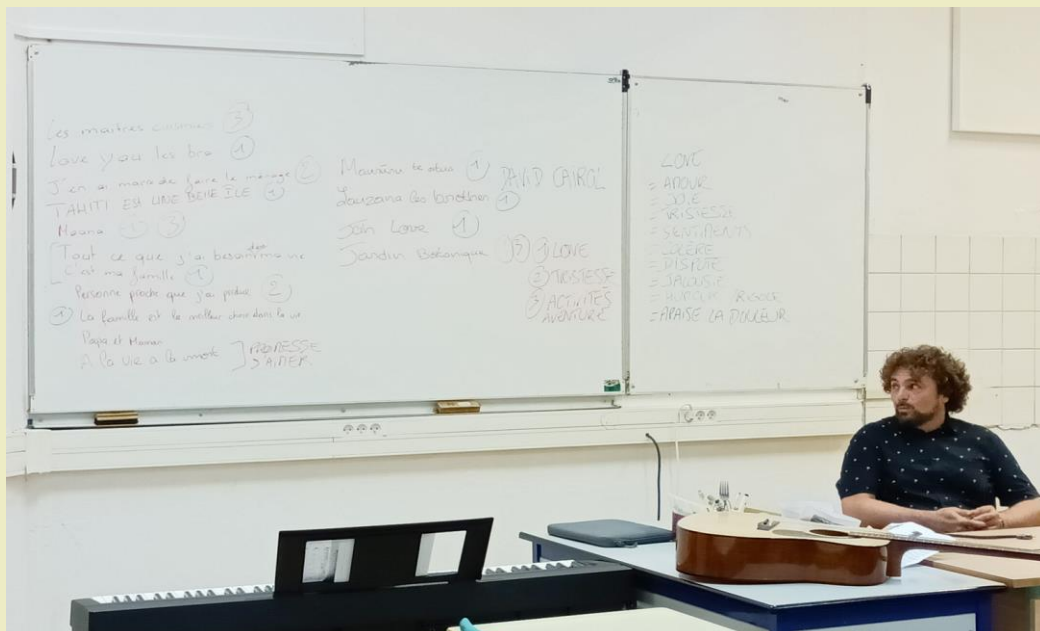 Les maîtres cuisiniers 3
Love you les bro 1
J'en ai marre de faire le ménage 2
TAHITI EST UNE BELLE ÎLE 1
Mauna 1 3
Tout ce que j'ai besoin des ma vie
c'est ma famille 1
Personne proche que j'ai perdue 2
1 La famille est le meilleur choix dans la vie
Papa et Maman
A la vie a la mort
PROMESSE
S'AIMER
Mauruuru te atua 1
Lauzana les brothers 1
Join Love 1
Jardin Botanique 3
DAVID CAIROL
1 LOVE
2 TRISTESSE
3 ACTIVITÉS
AVENTURE
LOVE
= AMOUR
= JOIE
= TRISTESSE
= SENTIMENTS
= COLÈRE
= DISPUTE
= JALOUSIE
= HUMOUR RIGOLE
= APAISE LA DOULEUR